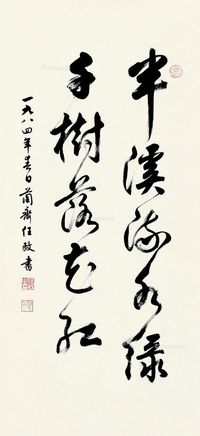 半溪流水绿
千树落花红
一九八四年春日兰斋任政书